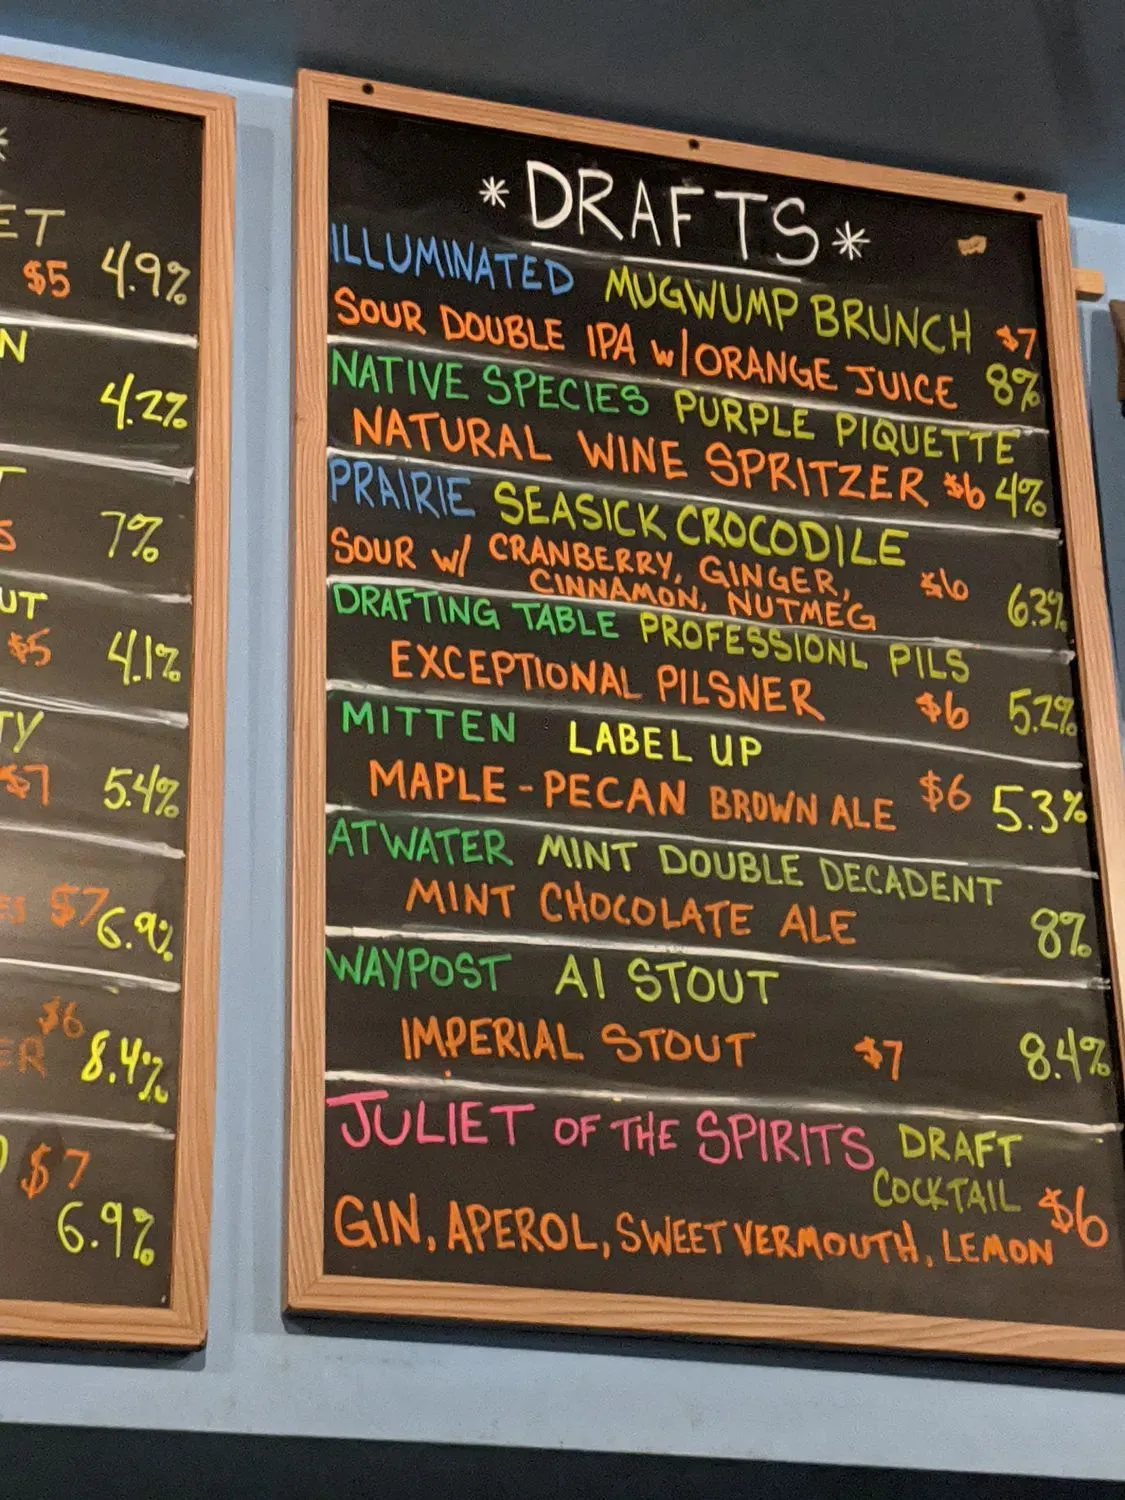 *
ET
$5 4.9%
N
4.2%
7%
UT
$5 4.1%
TY
$7 5.4%
$7 6.9%
$6
ER 8.4%
$7
6.9%
*DRAFTS*
ILLUMINATED MUGWUMP BRUNCH $7
SOUR DOUBLE IPA w/ORANGE JUICE 8%
NATIVE SPECIES PURPLE PIQUETTE
NATURAL WINE SPRITZER $6 4%
PRAIRIE SEASICK CROCODILE
SOUR w/ CRANBERRY, GINGER, $6 6.3%
CINNAMON, NUTMEG
DRAFTING TABLE PROFESSIONL PILS
EXCEPTIONAL PILSNER $6 5.2%
MITTEN LABEL UP
MAPLE-PECAN BROWN ALE $6 5.3%
ATWATER MINT DOUBLE DECADENT
MINT CHOCOLATE ALE 8%
WAYPOST A1 STOUT
IMPERIAL STOUT $7 8.4%
JULIET OF THE SPIRITS DRAFT
COCKTAIL $6
GIN, APEROL, SWEET VERMOUTH, LEMON